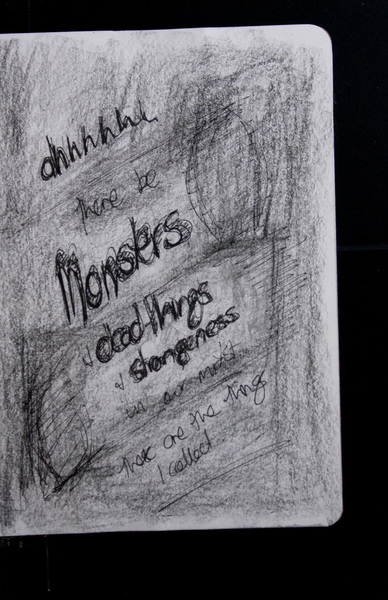 ahhhhhh
there be
Monsters
& dead-things
& strangeness
in our midst
these are the things
I collect